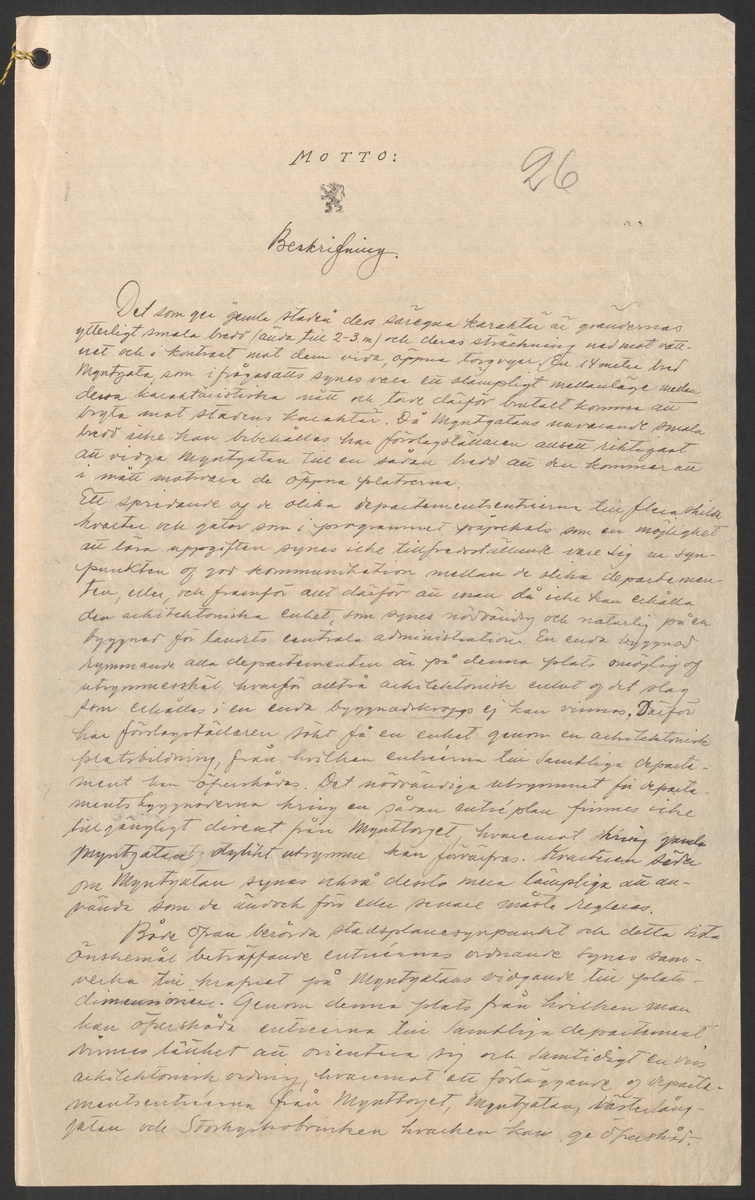 MOTTO:
26
Beskrifning.
Det som ger gamla staden dess säregna karaktär är grändernas
ytterligt smala bredd (ända till 2-3 m) och deras sträckning ned mot vatt-
net och i kontrast mot dem vida, öppna torgvyer. En 14 meter bred
Myntgata som ifrågasatts synes vara ett olämpligt mellanläge mellan
dessa karaktäristiska mått och torde därför brutalt komma att
bryta mot stadens karaktär. Då Myntgatans nuvarande smala
bredd icke kan bibehållas har förslagsställaren ansett riktigast
att vidga Myntgatan till en sådan bredd att den kommer att
i mått motsvara de öppna platserna.
Ett spridande af de olika departementsentréerna till flera skilda
kvarter och gator som i programmet påpekats som en möjlighet
att lösa uppgiften synes icke tillfredsställande vare sig ur syn-
punkten af god kommunikation mellan de olika departemen-
ten, eller, och framför allt därför att man då icke kan erhålla
den arkitektoniska enhet, som synes nödvändig och naturlig på en
byggnad för landets centrala administration. En enda byggnad
rymmande alla departementen är på denna plats omöjlig af
utrymmesskäl hvarför alltså arkitektonisk enhet af det slag
som erhålles i en enda byggnadskropp ej kan vinnas. Därför
har förslagsställaren sökt få en enhet genom en arkitektonisk
platsbildning, från hvilken entréerna till samtliga departe-
ment kan öfverskådas. Det nödvändiga utrymmet för departe-
mentsbyggnaderna kring en sådan entréplan finnes icke
tillgängligt direkt från Mynttorget, hvaremot kring gamla
Myntgatan dylikt utrymme kan förvärfvas. Kvarteren söder
om Myntgatan synas också desto mera lämpliga att an-
vända som de ändock förr eller senare måste regleras.
Både ofvan berörda stadsplanesynpunkt och detta sista
önskemål beträffande entréernas ordnande synes sam-
verka till krafvet på Myntgatans vidgande till plats-
dimensioner. Genom denna plats från hvilken man
kan öfverskåda entréerna till samtliga departement
vinnes lätthet att orientera sig och samtidigt en viss
arkitektonisk ordning, hvaremot ett förläggande af departe-
mentsentréerna från Mynttorget, Myntgatan, Västerlång-
gatan och Storkyrkobrinken hvarken kan ge öfverskåd-